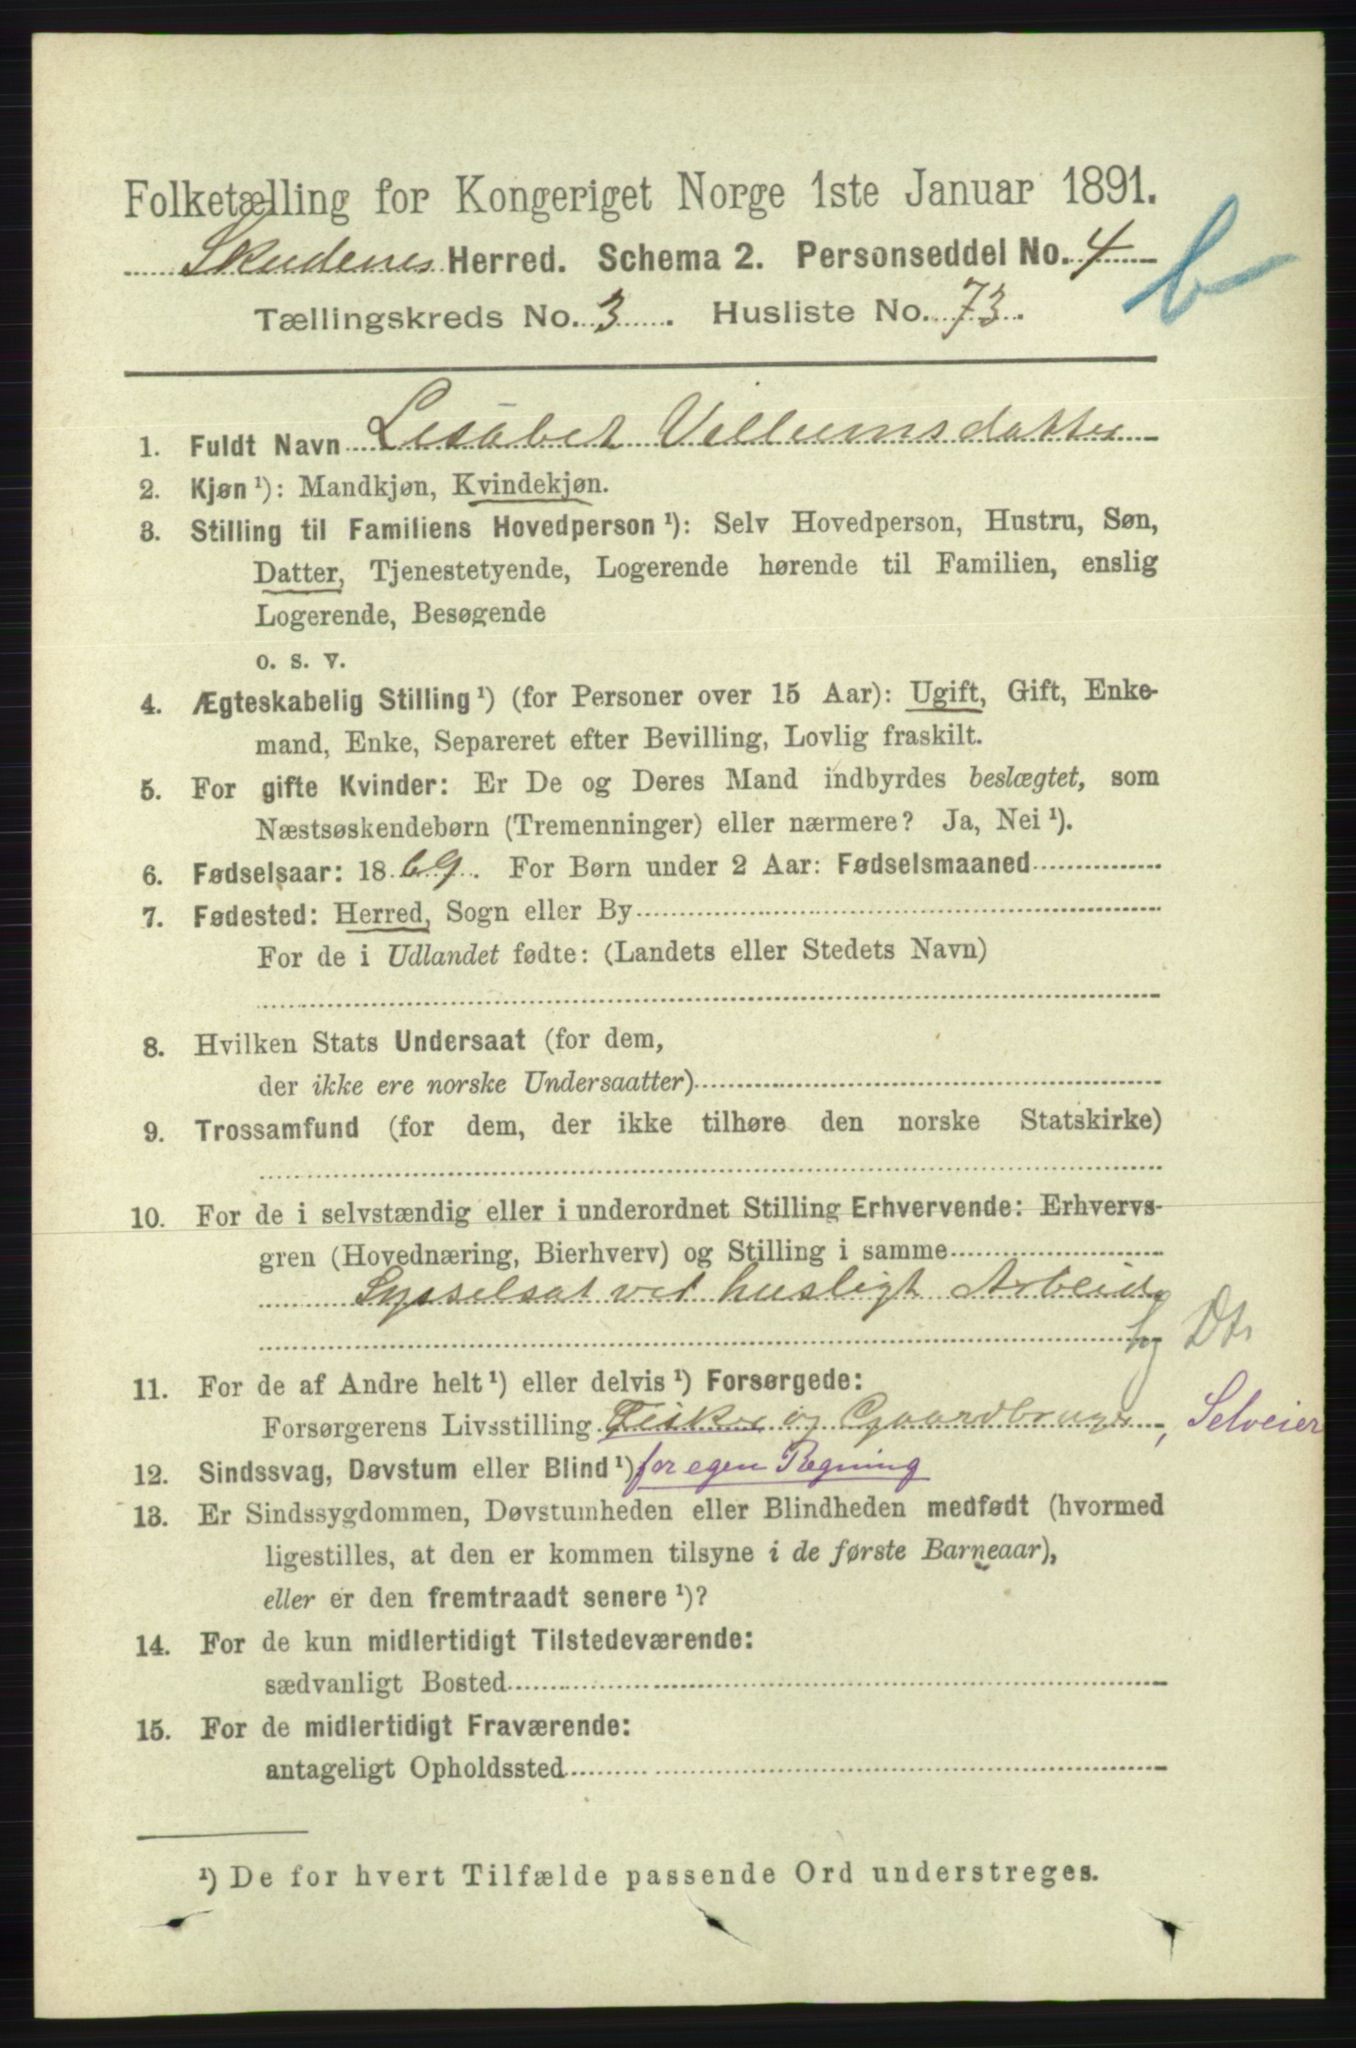 Folketælling for Kongeriget Norge 1ste Januar 1891.
Skudenes Herred. Schema 2. Personseddel No. 4
b
Tællingskreds No. 3. Husliste No. 73.
1. Fuldt Navn Lisabet Villumsdatter
2. Kjøn¹): Mandkjøn, Kvindekjøn.
3. Stilling til Familiens Hovedperson¹): Selv Hovedperson, Hustru, Søn,
Datter, Tjenestetyende, Logerende hørende til Familien, enslig
Logerende, Besøgende
o. s. v.
4. Ægteskabelig Stilling¹) (for Personer over 15 Aar): Ugift, Gift, Enke-
mand, Enke, Separeret efter Bevilling, Lovlig fraskilt.
5. For gifte Kvinder: Er De og Deres Mand indbyrdes beslægtet, som
Næstsøskendebørn (Tremenninger) eller nærmere? Ja, Nei¹).
6. Fødselsaar: 1869. For Børn under 2 Aar: Fødselsmaaned
7. Fødested: Herred, Sogn eller By
For de i Udlandet fødte: (Landets eller Stedets Navn)
8. Hvilken Stats Undersaat (for dem,
der ikke ere norske Undersaatter)
9. Trossamfund (for dem, der ikke tilhøre den norske Statskirke)
10. For de i selvstændig eller i underordnet Stilling Erhvervende: Erhvervs-
gren (Hovednæring, Bierhverv) og Stilling i samme
Sysselsat ved husligt Arbeide
hg Dtr
11. For de af Andre helt¹) eller delvis¹) Forsørgede:
Forsørgerens Livsstilling Fisker og Gaardbruger, Selveier
12. Sindssvag, Døvstum eller Blind¹) for egen Regning
13. Er Sindssygdommen, Døvstumheden eller Blindheden medfødt (hvormed
ligestilles, at den er kommen tilsyne i de første Barneaar),
eller er den fremtraadt senere¹)?
14. For de kun midlertidigt Tilstedeværende:
sædvanligt Bosted
15. For de midlertidigt Fraværende:
antageligt Opholdssted
¹) De for hvert Tilfælde passende Ord understreges.